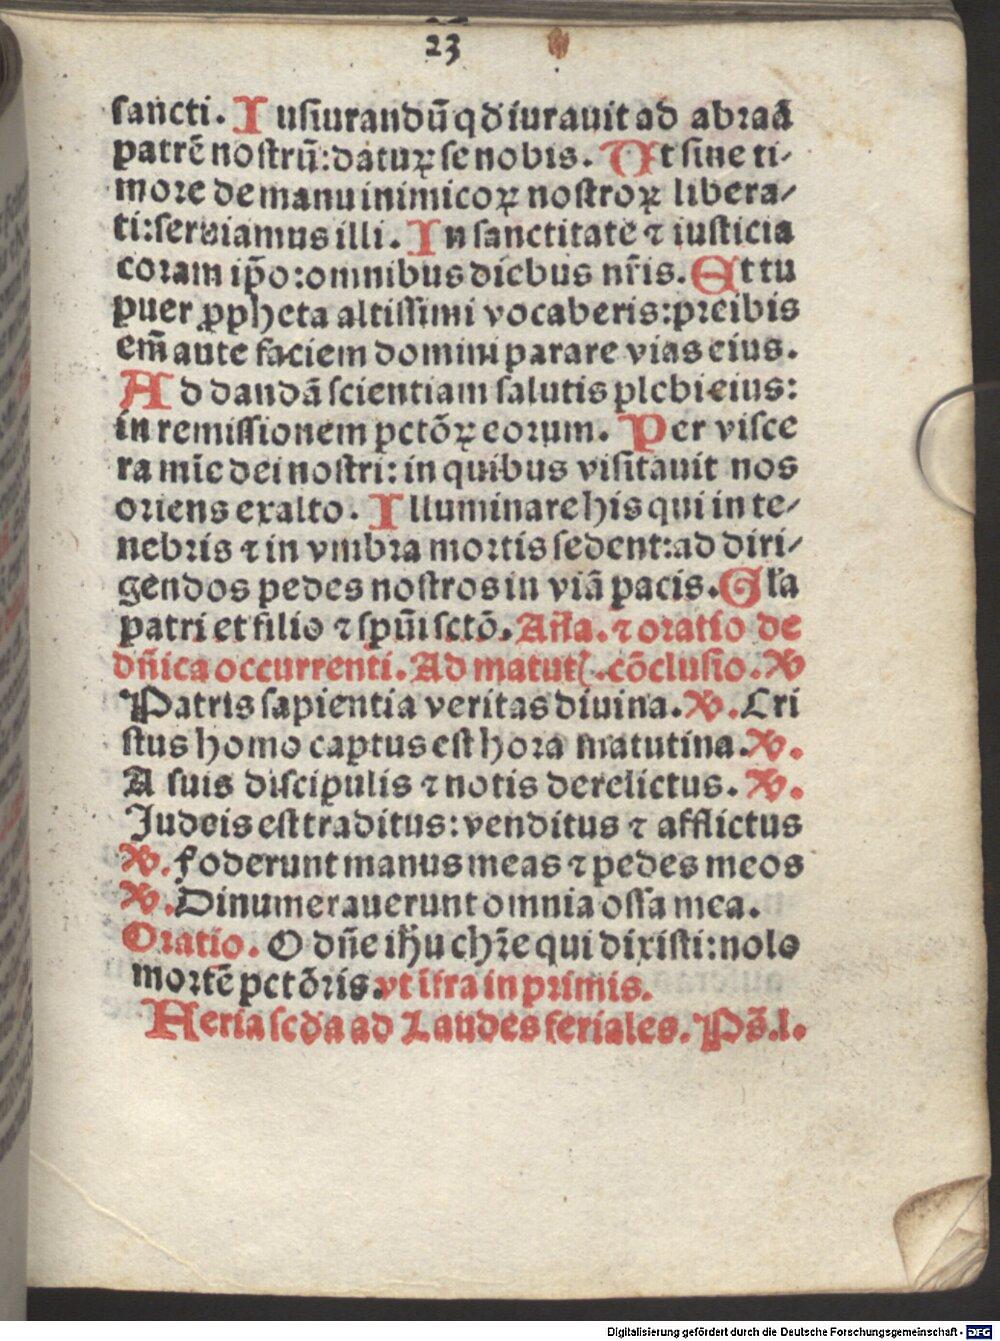 23
sancti. Iusiurandū qď iurauit ad abraā
patrē nostrū: daturꝝ se nobis. Ut sine ti-
more de manu inimicoꝝ nostroꝝ libera-
ti: seruiamus illi. In sanctitate ⁊ iusticia
coram ip̄o: omnibus diebus nr̄is. Et tu
puer ꝓpheta altissimi vocaberis: preibis
em̄ ante faciem domini parare vias eius.
Ad dandā scientiam salutis plebi eius:
in remissionem pctōꝝ eorum. Per visce
ra mīe dei nostri: in quibus visitauit nos
oriens exalto. Illuminare his qui in te-
nebris ⁊ in vmbra mortis sedent: ad diri-
gendos pedes nostros in viā pacis. Gl'a
patri et filio ⁊ spūi sctō. Aña. ⁊ oratio de
dñica occurrenti. Ad matut. cōclusio. ℣
Patris sapientia veritas diuina. ℣. Cri
stus homo captus est hora matutina. ℣.
A suis discipulis ⁊ notis derelictus. ℣.
Judeis est traditus: venditus ⁊ afflictus
℣. Foderunt manus meas ⁊ pedes meos
℣. Dinumerauerunt omnia ossa mea.
Oratio. O dñe ihū chr̄e qui dixisti: nolo
mortē pctōris. vt īfra in primis.
Feria scďa ad Laudes feriales. Ps̄. l.
Digitalisierung gefördert durch die Deutsche Forschungsgemeinschaft - DFG